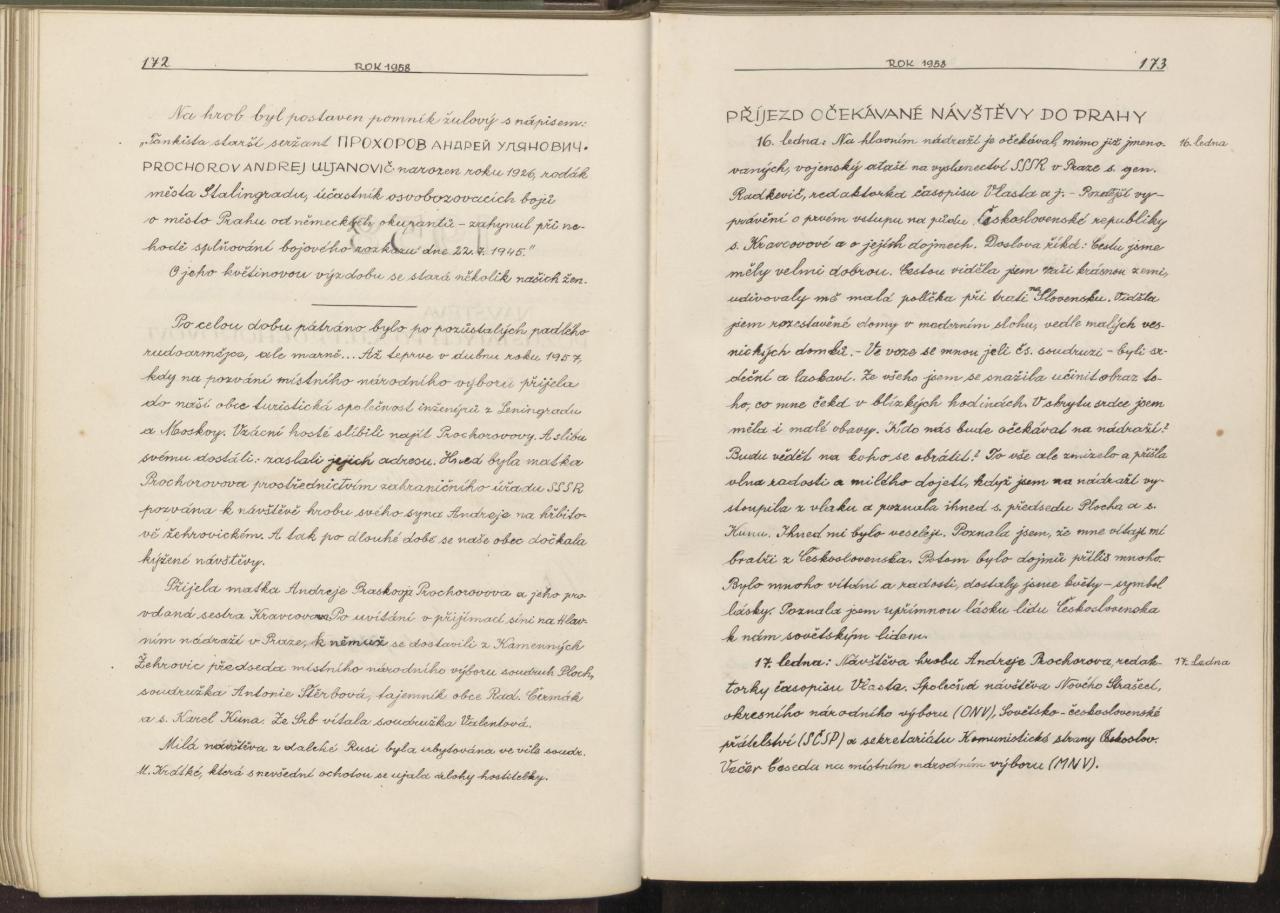 172
ROK 1958
Na hrob byl postaven pomník žulový s nápisem:
„Tankista starší seržant ПРОХОРОВ АНДРЕЙ УЛЯНОВИЧ.
PROCHOROV ANDREJ ULJANOVIČ narozen roku 1926, rodák
města Stalingradu, účastník osvobozovacích bojů
o město Prahu od německých okupantů – zahynul při ne-
hodě splňování bojového rozkazu dne 22.7. 1945."
O jeho květinovou výzdobu se stará několik našich žen.
Po celou dobu pátráno bylo po pozůstalých padlého
rudoarmějce, ale marně... Až teprve v dubnu roku 1957,
kdy na pozvání místního národního výboru přijela
do naší obce turistická společnost inženýrů z Leningradu
a Moskvy. Vzácní hosté slíbili najít Prochorovovy. A slibu
svému dostáli: zaslali jejich adresu. Hned byla matka
Prochorovova prostřednictvím zahraničního úřadu SSSR
pozvána k návštěvě hrobu svého syna Andreje na hřbito-
vě žehrovickém. A tak po dlouhé době se naše obec dočkala
kýžené návštěvy.
Přijela matka Andreje Praskovja Prochorovova a jeho pro-
vdaná sestra Kravcovova. Po uvítání v přijímací síni na Hlav-
ním nádraží v Praze, k němuž se dostavili z Kamenných
Žehrovic předseda místního národního výboru soudruh Ploch,
soudružka Antonie Štěrbová, tajemník obce Rad. Čermák
a s. Karel Kuna. Ze Srb vítala soudružka Valentová.
Milá návštěva z daleké Rusi byla ubytována ve vile soudr.
M. Krátké, která s nevšední ochotou se ujala úlohy hostitelky.
ROK 1958
173
PŘÍJEZD OČEKÁVANÉ NÁVŠTĚVY DO PRAHY
16. ledna: Na hlavním nádraží je očekával, mimo již jmeno-
16. ledna
vaných, vojenský ataše na vyslanectví SSSR v Praze s. gen.
Radkevič, redaktorka časopisu Vlasta a j. – Použijí vy-
právění o prvém vstupu na půdu Československé republiky
s. Kravcovové a o jejích dojmech. Doslova říká: Cestu jsme
měly velmi dobrou. Cestou viděla jsem vaši krásnou zemi,
udivovaly mě malá políčka při trati na Slovensku. Viděla
jsem rozestavěné domy v moderním slohu, vedle malých ves-
nických domků. – Ve voze se mnou jeli čs. soudruzi – byli sr-
deční a laskaví. Ze všeho jsem se snažila učinit obraz to-
ho, co mne čeká v blízkých hodinách. V skrytu srdce jsem
měla i malé obavy. Kdo nás bude očekávat na nádraží?
Budu vědět na koho se obrátit? To vše ale zmizelo a přišla
vlna radosti a milého dojetí, když jsem na nádraží vy-
stoupila z vlaku a poznala ihned s. předsedu Plocha a s.
Kunu. Ihned mi bylo veseleji. Poznala jsem, že mne vítají mí
bratři z Československa. Potom bylo dojmů příliš mnoho.
Bylo mnoho vítání a radosti, dostaly jsme květy – symbol
lásky. Poznala jsem upřímnou lásku lidu Československa
k nám sovětským lidem.
17. ledna: Návštěva hrobu Andreje Prochorova, redak-
17. ledna
torky časopisu Vlasta. Společná návštěva Nového Strašecí,
okresního národního výboru (ONV), Sovětsko-československé
přátelství (SČSP) a sekretariátu Komunistické strany Českoslov.
Večer beseda na místním národním výboru (MNV).